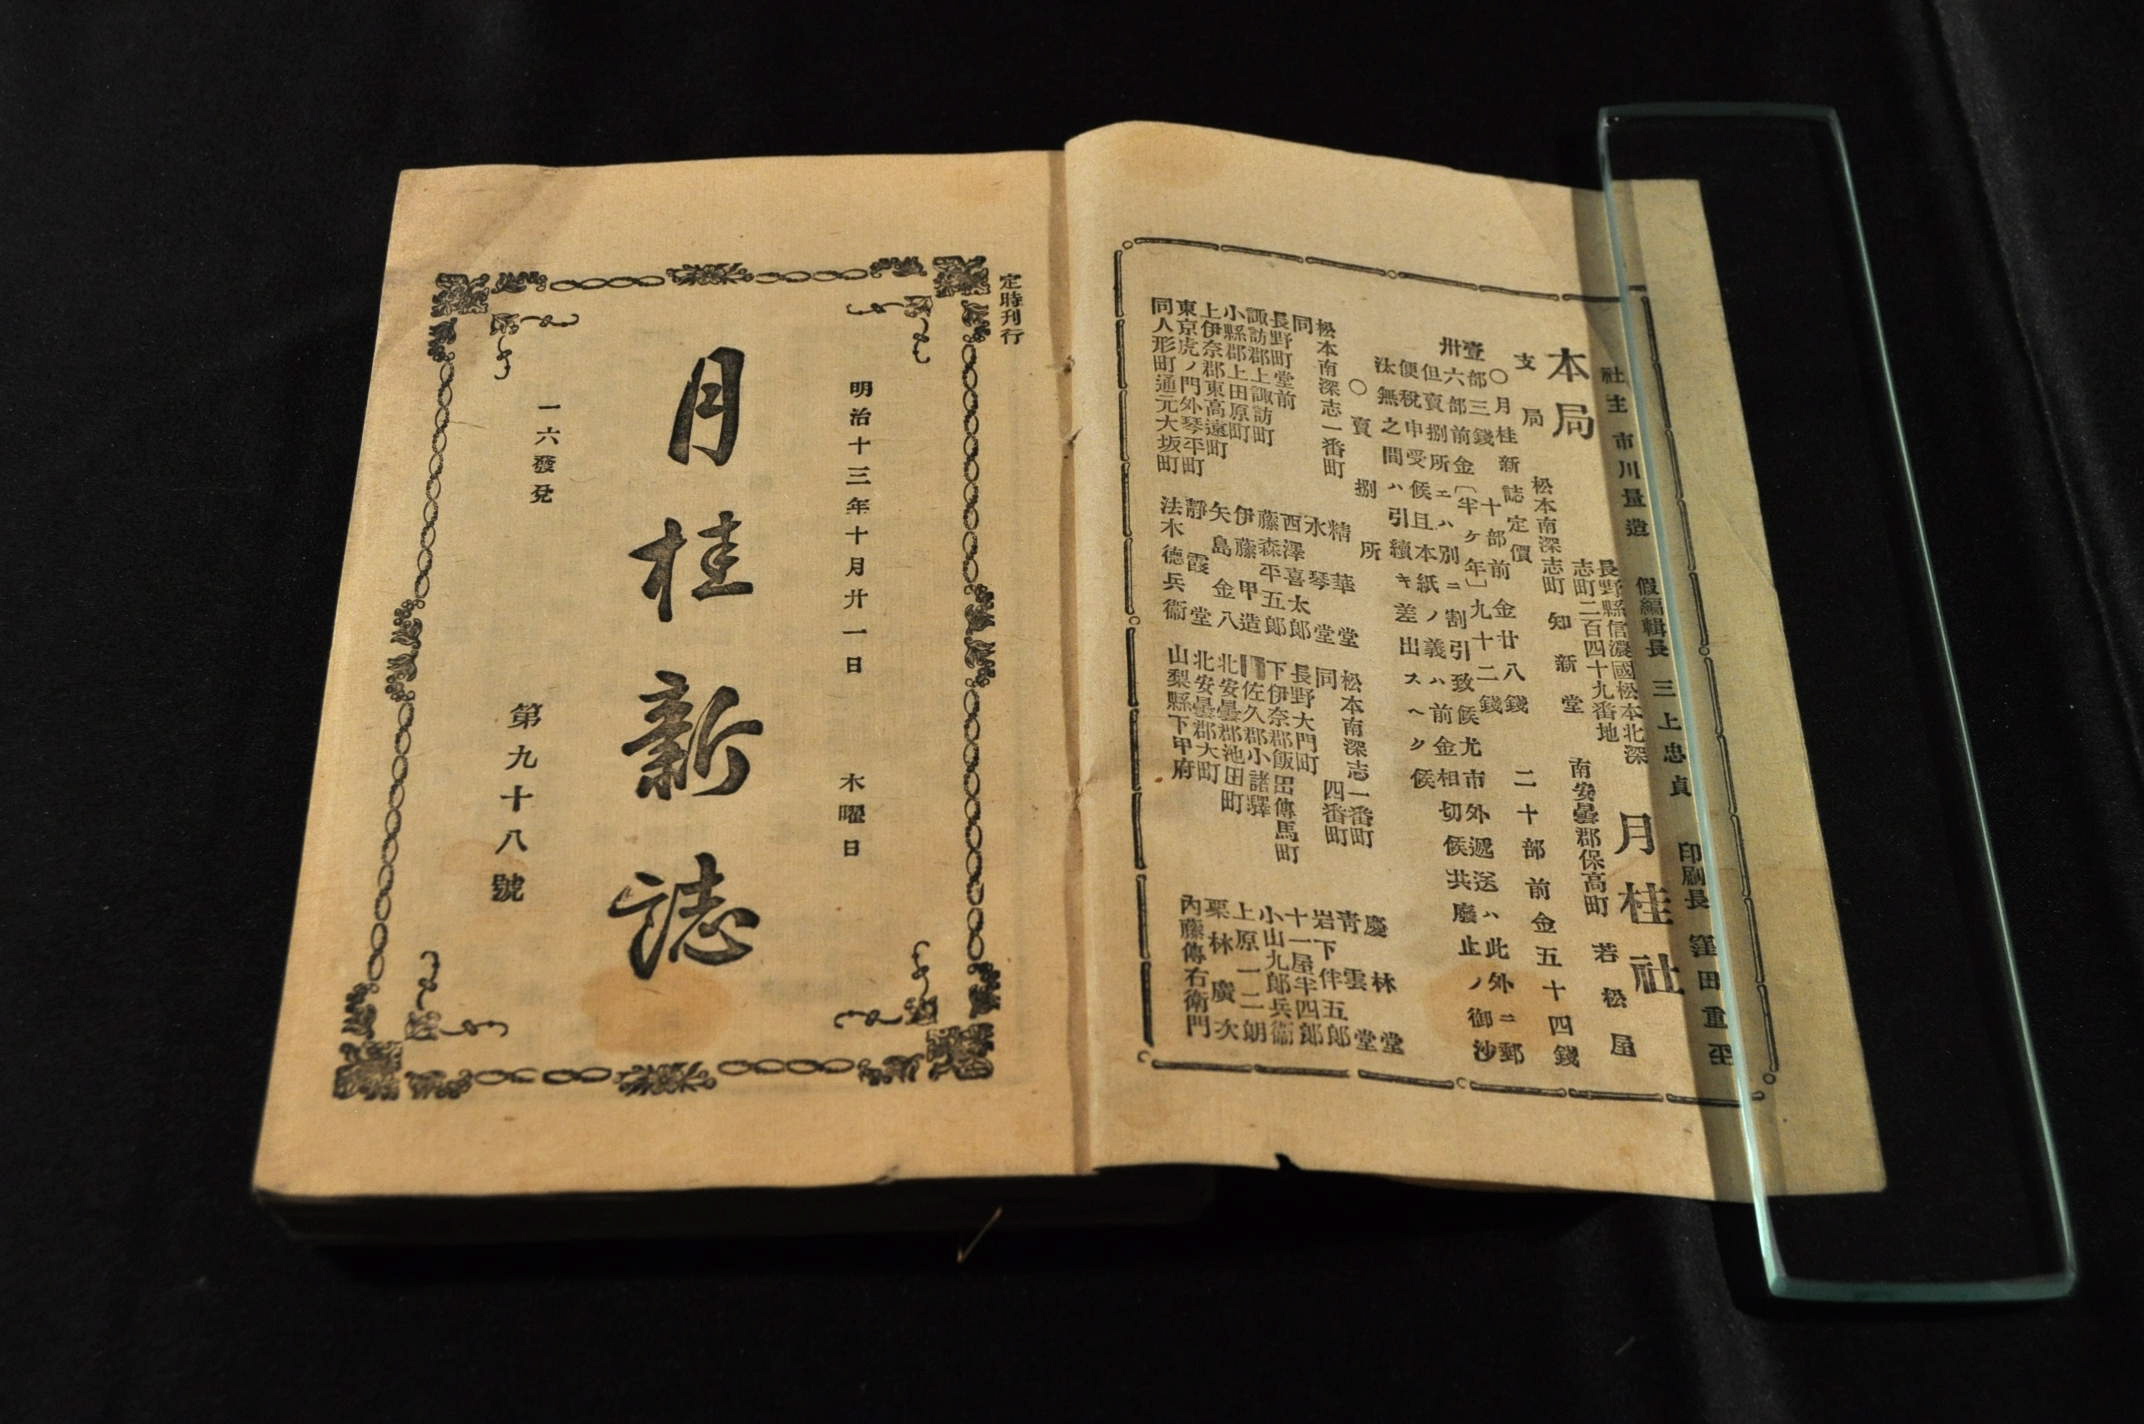 社主 市川量造 假編輯長 三上忠貞 印刷長 窪田重平
長野縣信濃國松本北深
志町二百四十九番地
本局 月桂社
支局 松本南深志町 知新堂 南安曇郡保高町 若松屋
○月桂新誌定價
壹部三錢 十部前金廿八錢 二十部前金五十四錢
卅六部前金〔半ケ年〕九十二錢
但賣捌所ェハ別ニ割引致候尤市外遞送ハ此外ニ郵
便稅申受候且本紙ノ義ハ前金相切候共廢止ノ御沙
汰無之間ハ引續キ差出スヘク候
○賣捌所
松本南深志一番町 精華堂 松本南深志一番町 慶林堂
同 水琴堂 同 四番町 青雲堂
長野町堂前 西澤喜太郎 長野大門町 岩下伴五郎
諏訪郡上諏訪町 藤森平五郎 下伊奈郡飯田傳馬町 十一屋半四郎
小縣郡上田原町 伊藤甲造 佐久郡小諸驛 小山九郎兵衞
上伊奈郡東高遠町 矢島金八 北安曇郡池田町 上原一二朗
東京虎ノ門外琴平町 靜霞堂 北安曇郡大町 栗林廣次
同人形町通元大坂町 法木德兵衞 山梨縣下甲府 內藤傳右衛門
定時刊行
明治十三年十月廿一日 木曜日
月桂新誌
一六發兌 第九十八號